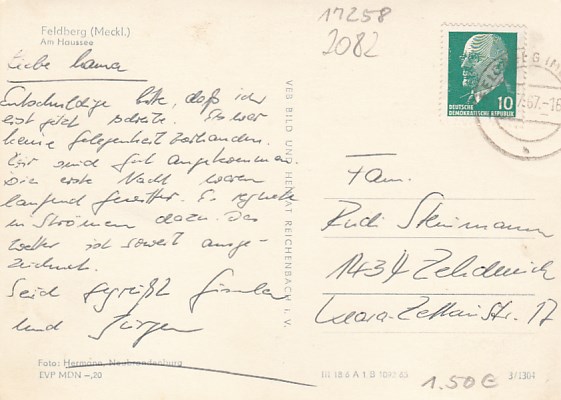 17258
2082
Feldberg (Meckl.)
Am Haussee
Liebe Mama
Entschuldige bitte, daß ich
erst jetzt schreibe. Es war
keine Gelegenheit vorhanden.
Wir sind gut angekommen.
Die erste Nacht waren
laufend Gewitter. Es regnete
in Strömen dazu. Das
Wetter ist soweit ausge-
zeichnet.
Seid gegrüßt Gisela
und Jürgen
Foto: Hermann, Neubrandenburg
EVP MDN -,20
VEB BILD UND HEIMAT REICHENBACH I. V.
DEUTSCHE
DEMOKRATISCHE REPUBLIK
10
67.-16
Fam.
Rudi Steinmann
1434 Zehdenick
Clara-Zetkin Str. 17
III 18 6 A 1 B 65
1.50€
3/1304